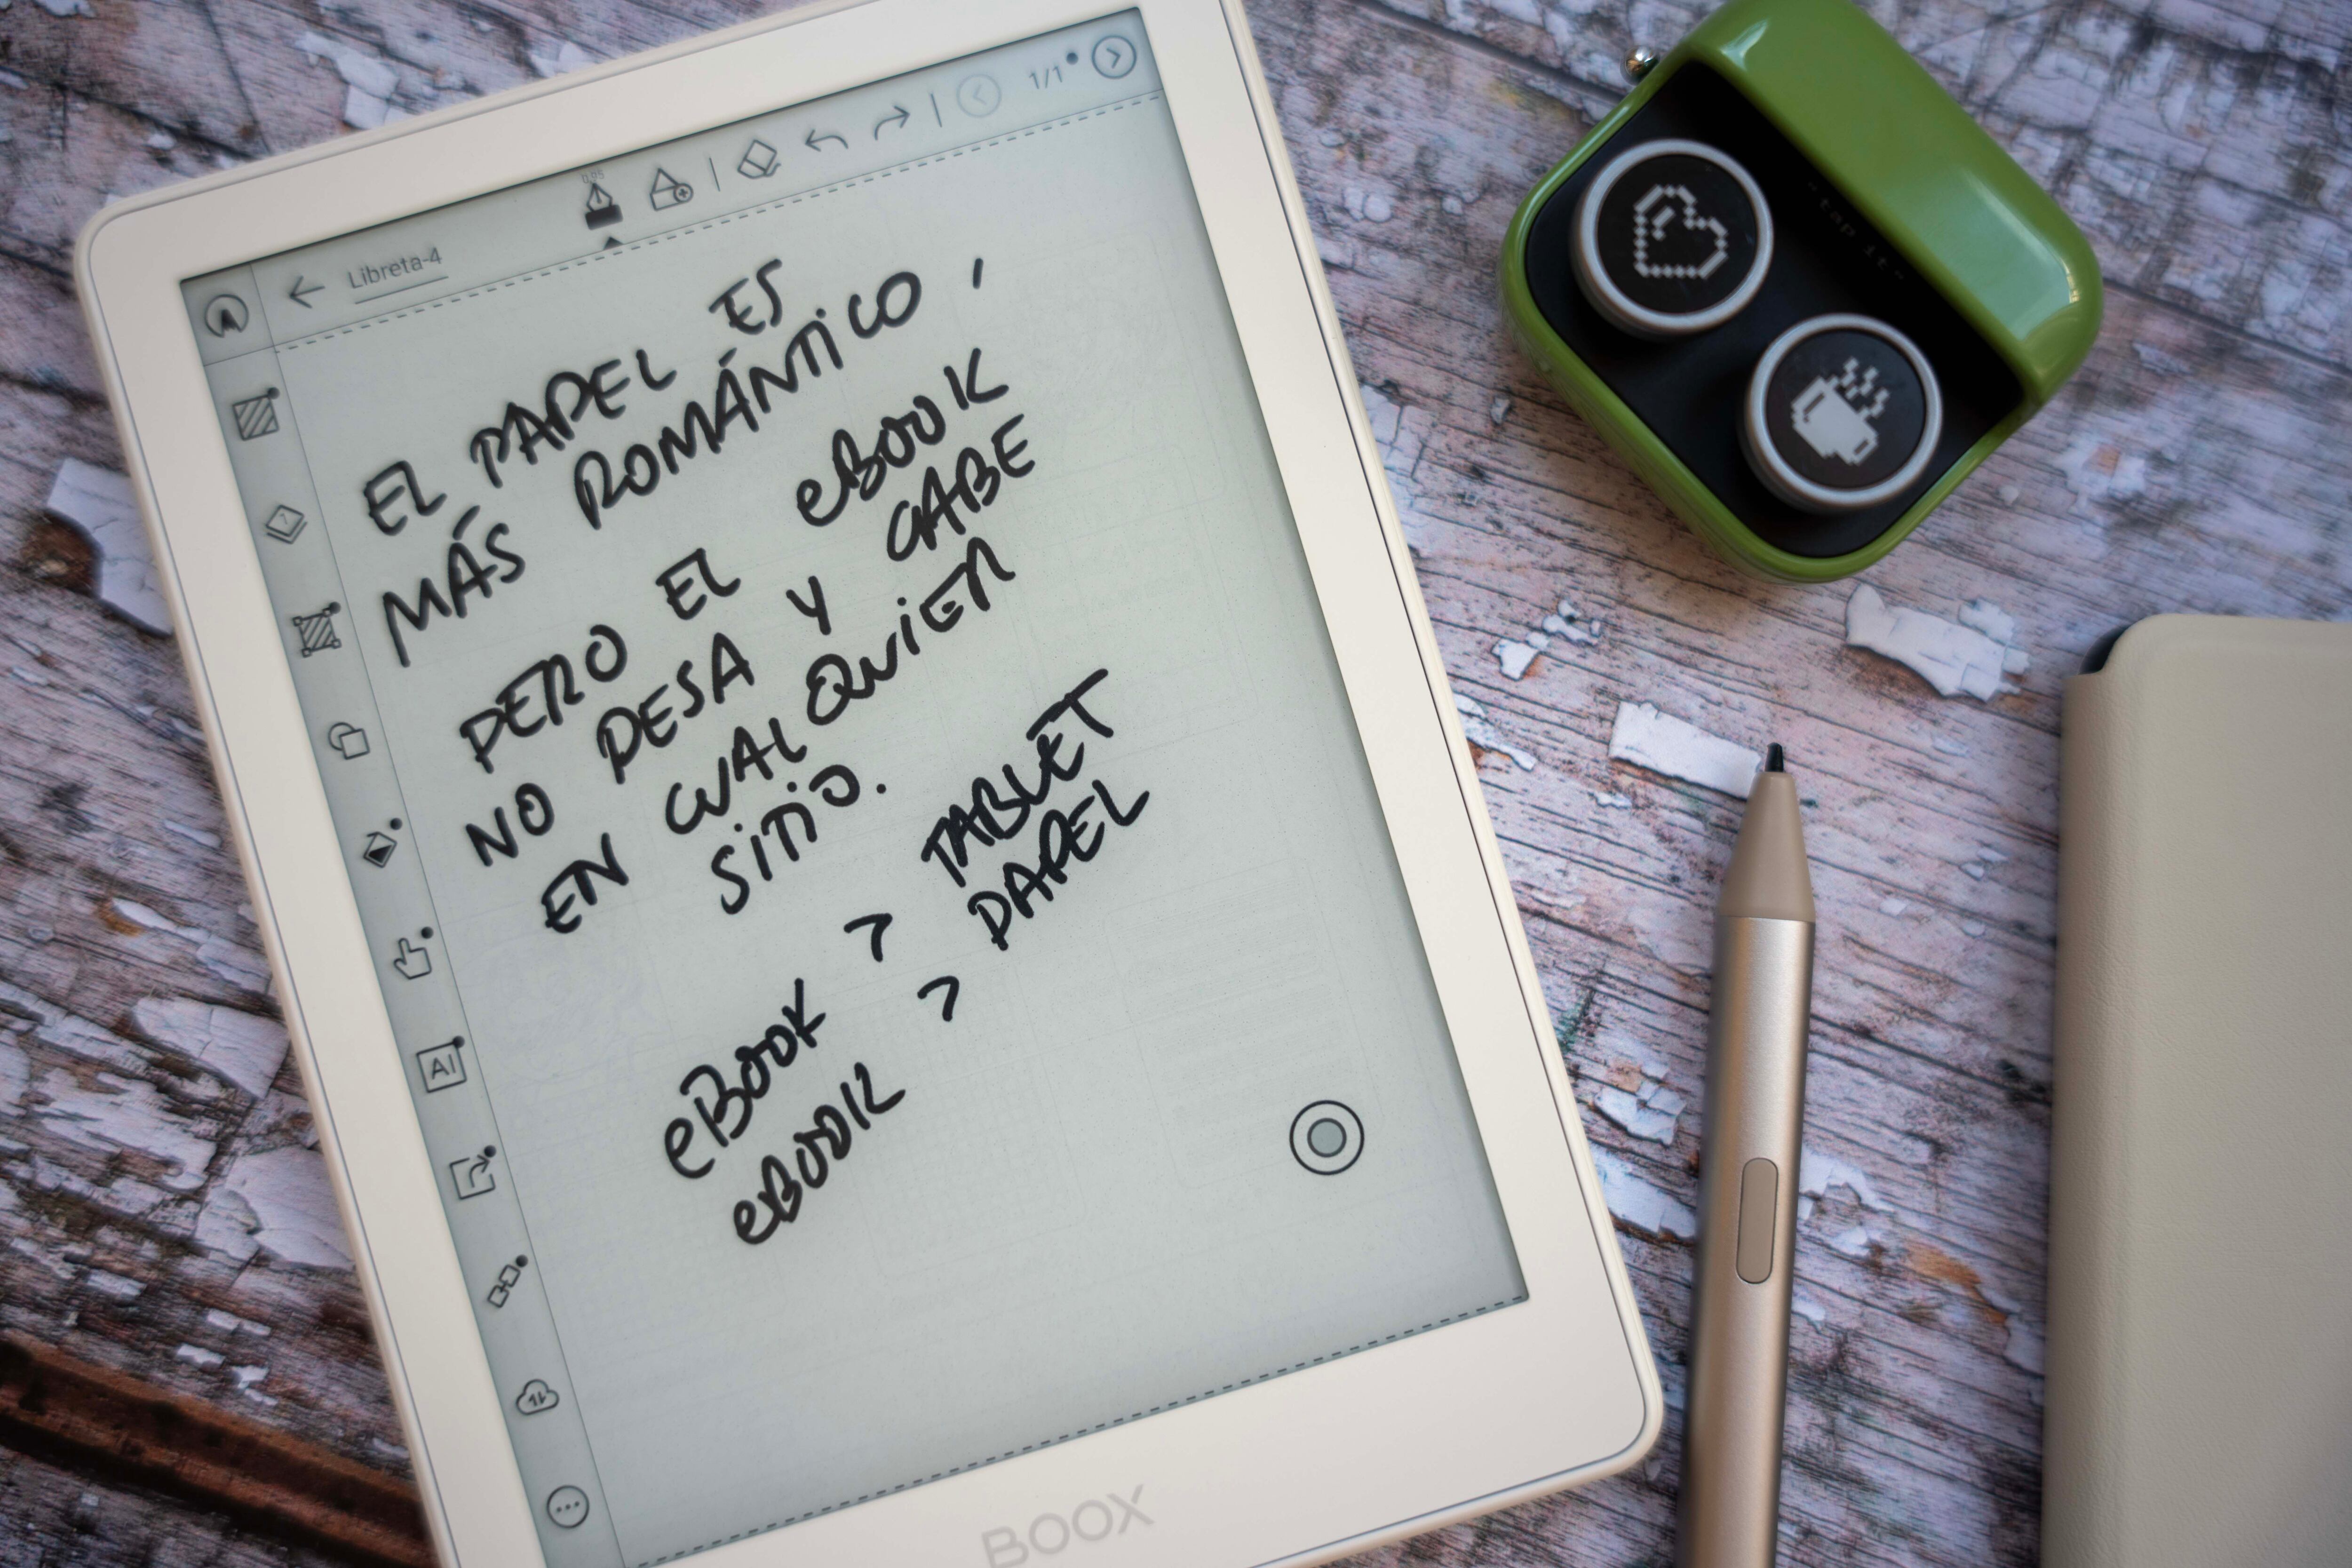 Libreta-4
1/1
0.95
EL PAPEL ES
MÁS ROMÁNTICO,
PERO EL eBOOK
NO PESA Y CABE
EN CUALQUIER
SITIO.
eBOOK > TABLET
eBOOK > PAPEL
AI
BOOX
"tap it"